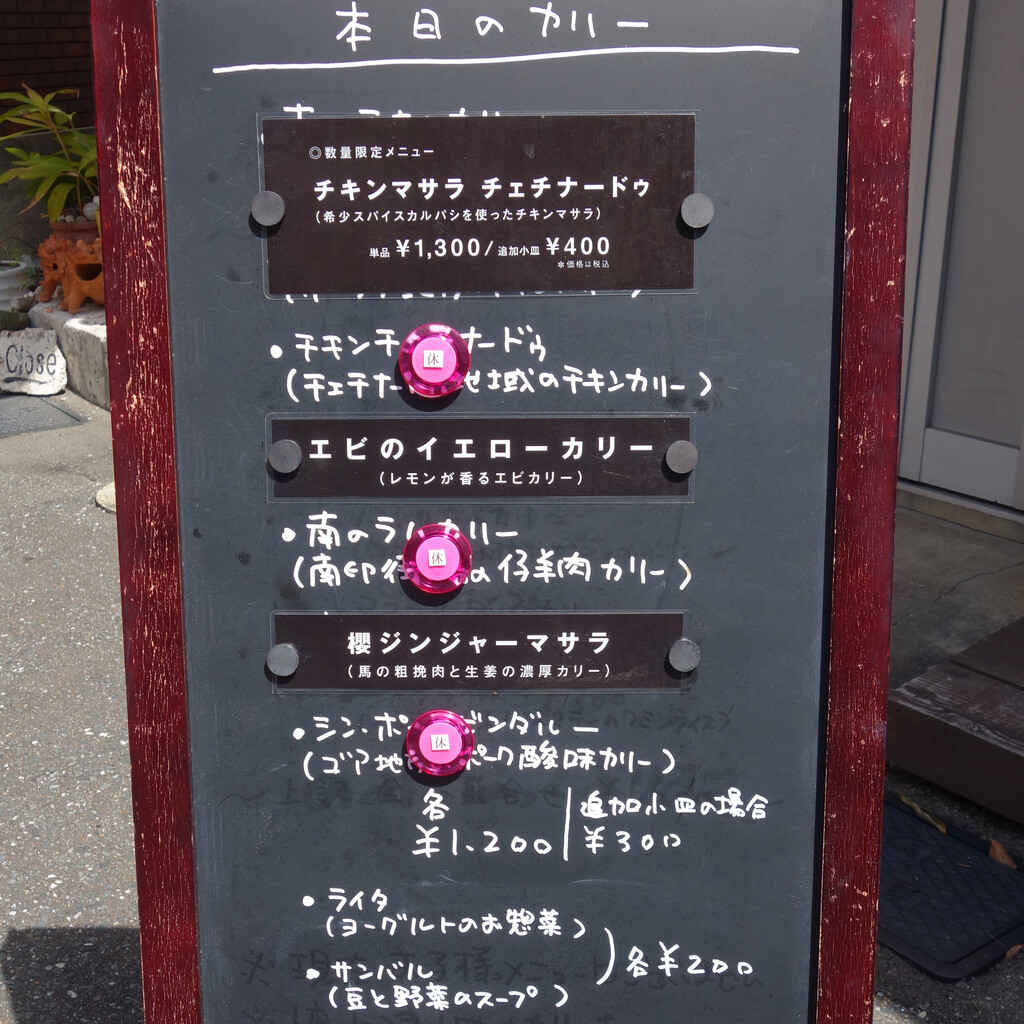 本日のカリー
◎数量限定メニュー
チキンマサラ チェチナードゥ
(希少スパイスカルパシを使ったチキンマサラ)
単品 ¥1,300/追加小皿 ¥400
＊価格は税込
・チキンチ 休 ナードゥ
(チェテナー 地域のチキンカリー)
エビのイエローカリー
(レモンが香るエビカリー)
・南のラ カリー
休
(南印 仔羊肉カリー)
櫻ジンジャーマサラ
(馬の粗挽肉と生姜の濃厚カリー)
・シン・ポ ビンダルー
休
(ゴア地 ポーク酸味カリー)
各 追加小皿の場合
¥1,200 ¥300
・ライタ
(ヨーグルトのお惣菜)
・サンバル
(豆と野菜のスープ)
各¥200
Close